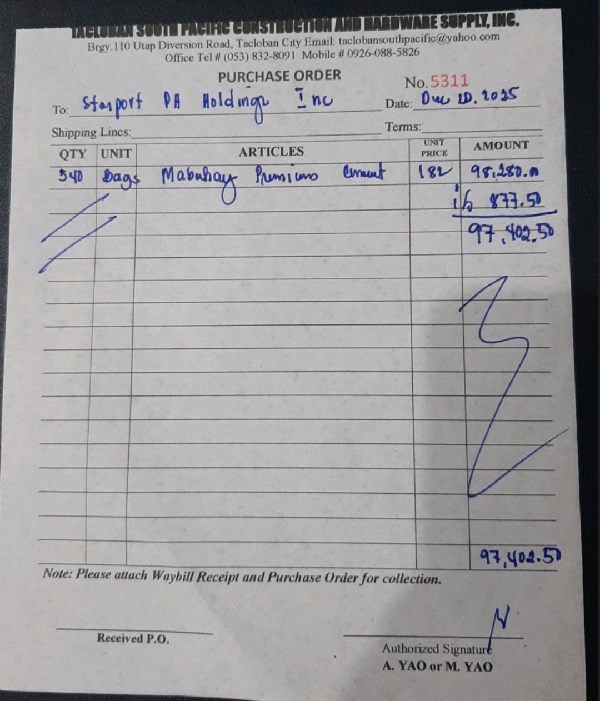 TACLOBAN SOUTH PACIFIC CONSTRUCTION AND HARDWARE SUPPLY, INC.
Brgy. 110 Utap Diversion Road, Tacloban City Email: taclobansouthpacific@yahoo.com
Office Tel # (053) 832-8091 Mobile # 0926-088-5826
PURCHASE ORDER
No. 5311
To: Starport PH Holdings Inc Date: Dec 20. 2025
Shipping Lines: Terms:
QTY UNIT ARTICLES UNIT PRICE AMOUNT
540 Bags Mabuhay Premium Cement 182 98,280.00
877.50
97,402.50
97,402.50
Note: Please attach Waybill Receipt and Purchase Order for collection.
Received P.O.
Authorized Signature
A. YAO or M. YAO